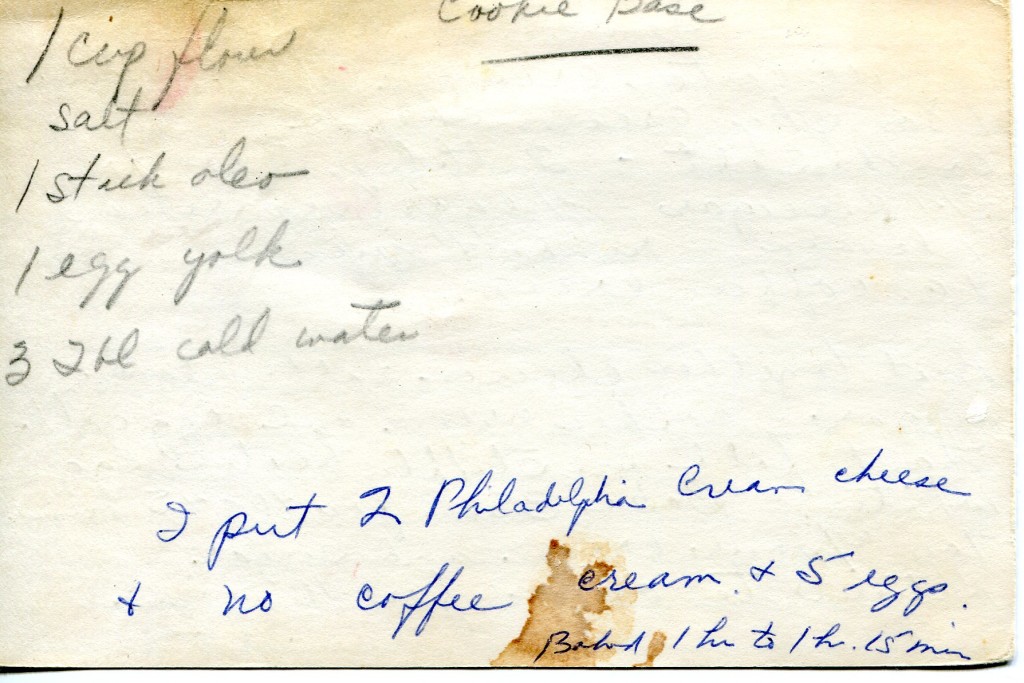 Cookie Base
1 cup flour
salt
1 stick oleo
1 egg yolk
3 Tbl cold water
I put 2 Philadelphia Cream cheese
+ no coffee cream + 5 eggs.
Baked 1 hr to 1 hr. 15 min